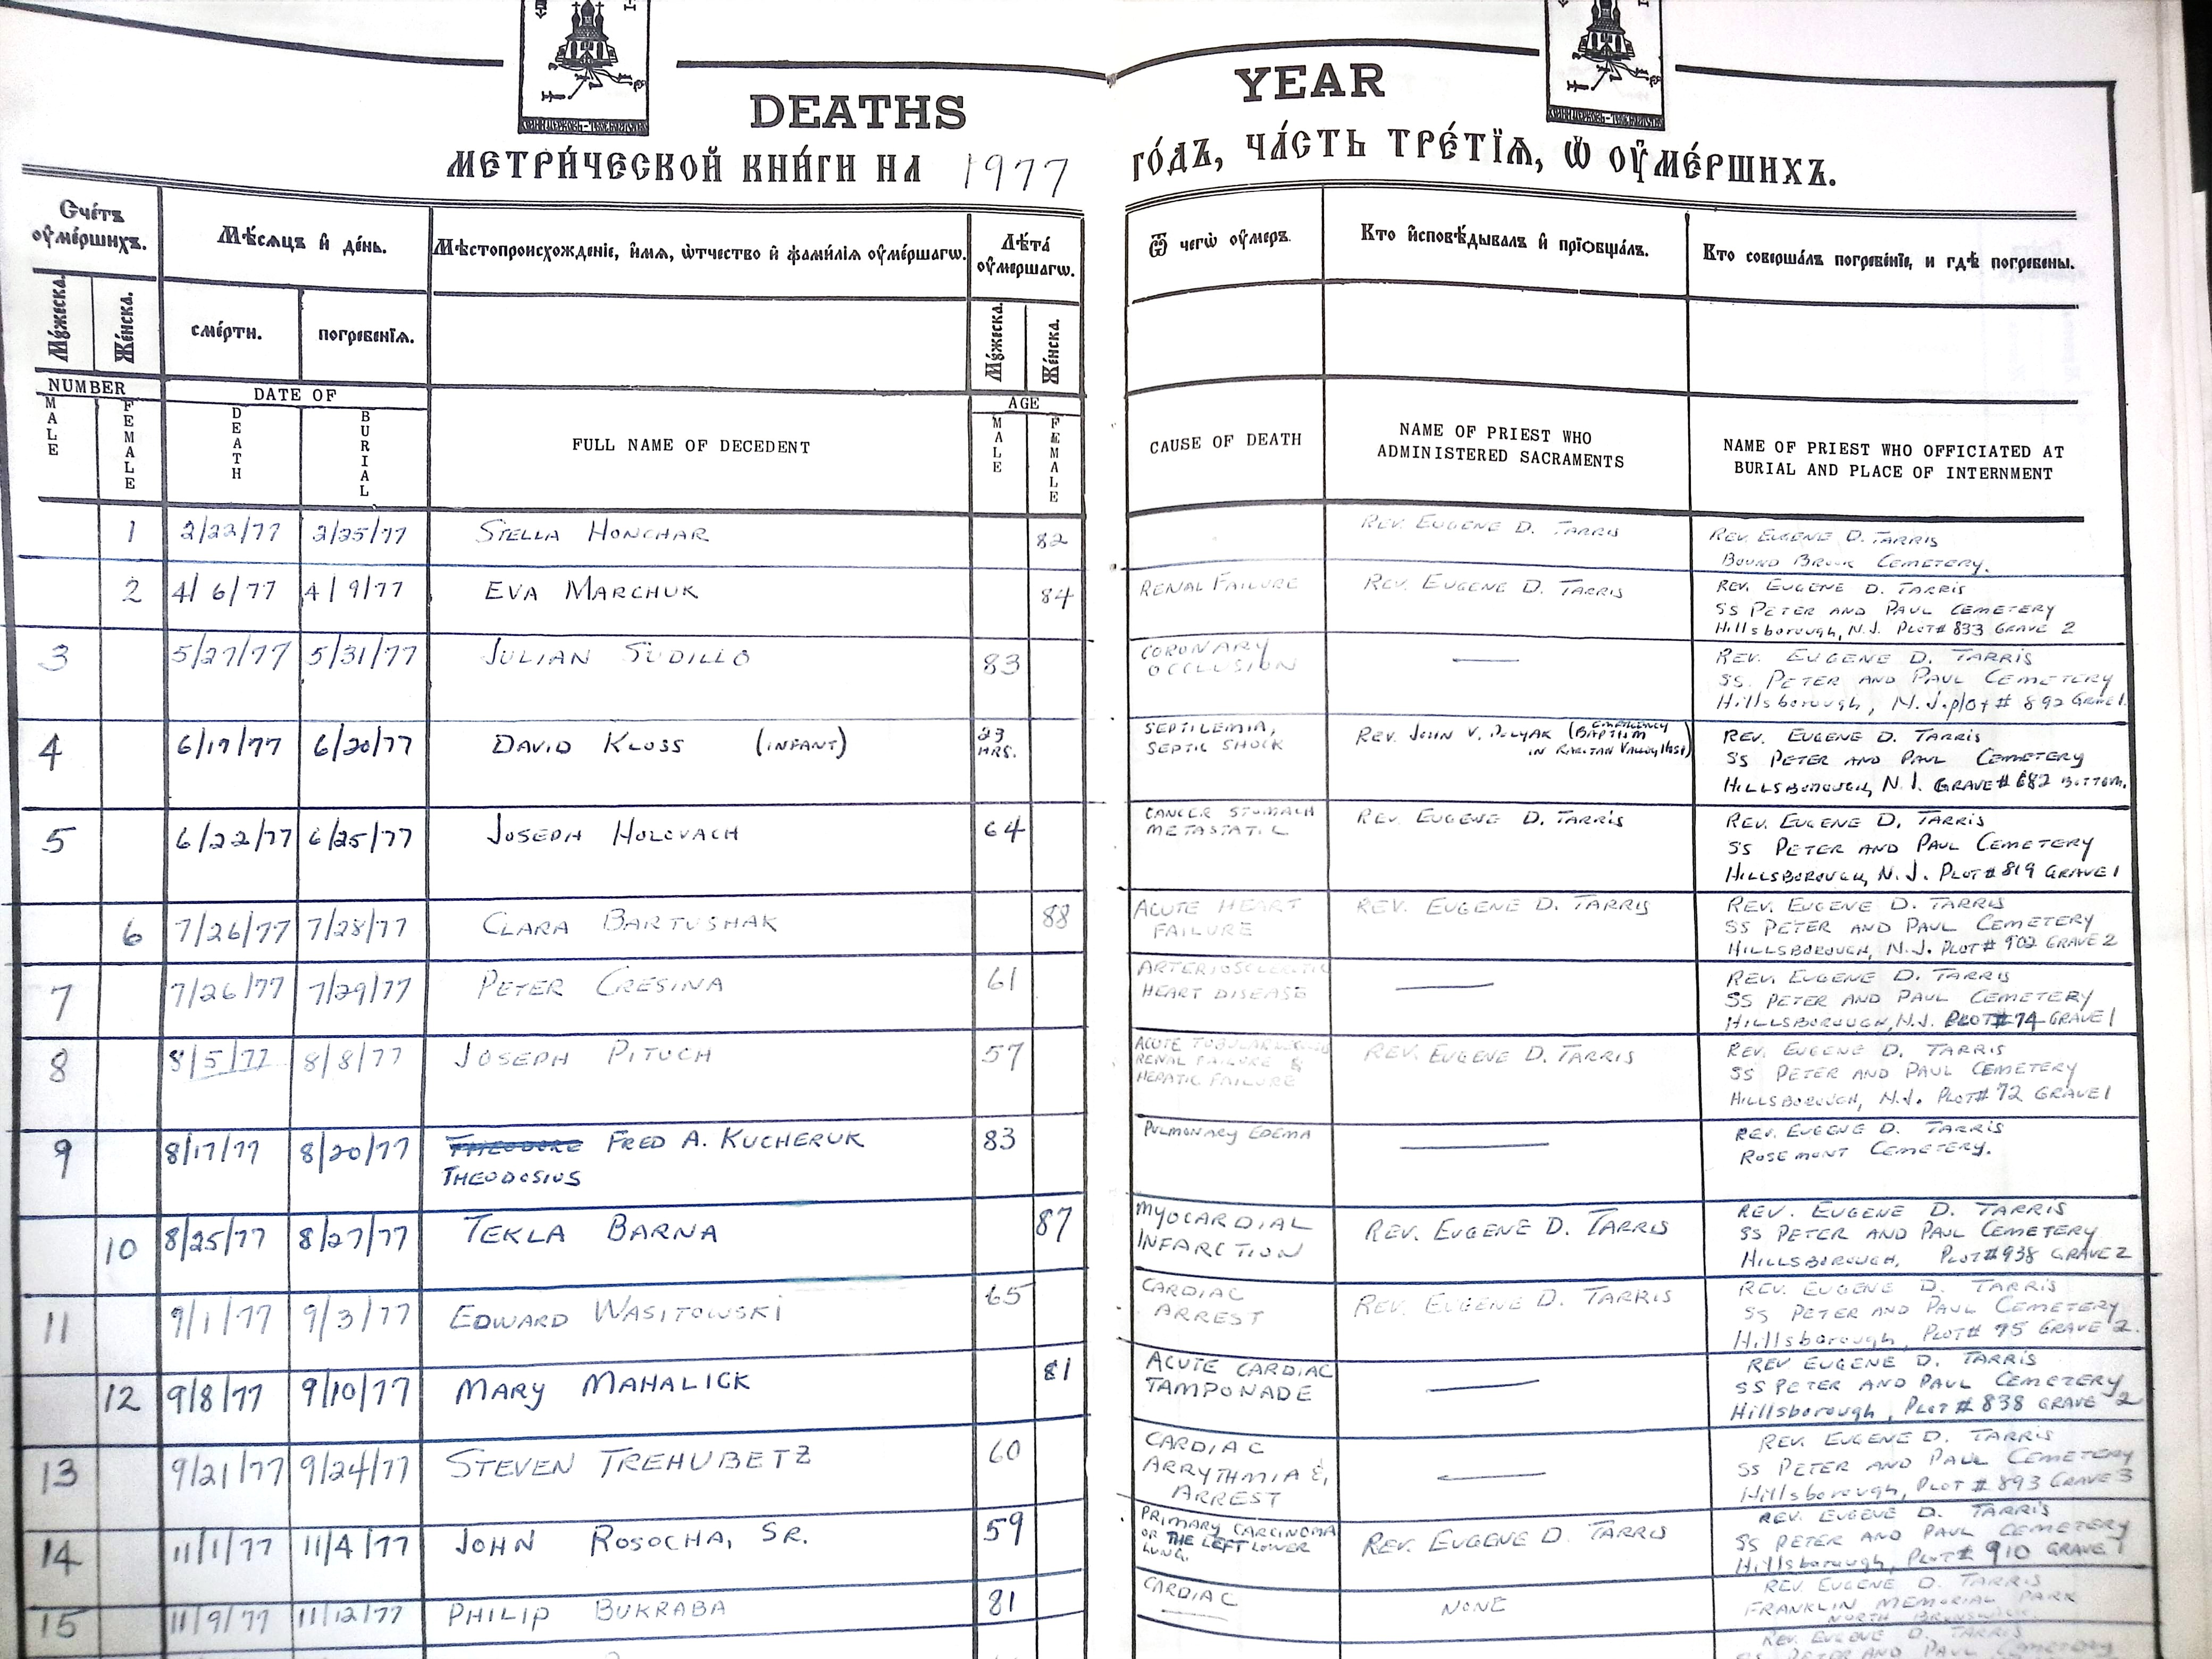 DEATHS YEAR
МЕТРИ́ЧЕСКОЙ КНИ́ГИ НА 1977 ГО́ДЪ, ЧА́СТЬ ТРЕ́ТЇѦ, Ѡ҆ ОУ҆МЕ́РШИХЪ.
Счéтъ оу҆мéршихъ.
Мѣ́сѧцъ и҆ дéнь.
Мѣстопроисхождéнїе, и҆́мѧ, ѻ҆́тчество и҆ фамѝлїѧ оу҆мéршагѡ.
Лѣ́та оу҆мершагѡ.
Ѿ чегѡ̀ оу҆́меръ.
Кто и҆сповѣ́дывалъ и҆ прїѻбща́лъ.
Кто соверша́лъ погребéнїе, и гдѣ̀ погребены.
Мꙋ́жеска.
Жéнска.
смéрти.
погребенїѧ.
Мꙋ́жеска.
Жéнска.
NUMBER
MALE
FEMALE
DATE OF
DEATH
BURIAL
FULL NAME OF DECEDENT
AGE
MALE
FEMALE
CAUSE OF DEATH
NAME OF PRIEST WHO
ADMINISTERED SACRAMENTS
NAME OF PRIEST WHO OFFICIATED AT
BURIAL AND PLACE OF INTERNMENT
1 2/22/77 2/25/77 STELLA HONCHAR 82 REV. EUGENE D. TARRIS
REV. EUGENE D. TARRIS
BOUND BROOK CEMETERY.
2 4/6/77 4/9/77 EVA MARCHUK 84 RENAL FAILURE REV. EUGENE D. TARRIS
REV. EUGENE D. TARRIS
SS PETER AND PAUL CEMETERY
Hillsborough, N.J. PLOT# 833 GRAVE 2
3 5/27/77 5/31/77 JULIAN SUDILLO 83
CORONARY
OCCLUSION
—
REV. EUGENE D. TARRIS
SS. PETER AND PAUL CEMETERY
Hillsborough, N.J. plot # 892 GRAVE 1
4 6/19/77 6/20/77 DAVID KLOSS (INFANT) 23 HRS.
SEPTILEMIA,
SEPTIC SHOCK
REV. JOHN V. POLYAK (EMERGENCY BAPTISM
IN RARITAN VALLEY HOSP)
REV. EUGENE D. TARRIS
SS PETER AND PAUL CEMETERY
HILLSBOROUGH, N.J. GRAVE # 682 BOTTOM.
5 6/22/77 6/25/77 JOSEPH HOLOVACH 64
CANCER STOMACH
METASTATIC
REV. EUGENE D. TARRIS
REV. EUGENE D. TARRIS
SS PETER AND PAUL CEMETERY
HILLSBOROUGH, N.J. PLOT # 819 GRAVE 1
6 7/26/77 7/28/77 CLARA BARTUSHAK 88
ACUTE HEART
FAILURE
REV. EUGENE D. TARRIS
REV. EUGENE D. TARRIS
SS PETER AND PAUL CEMETERY
HILLSBOROUGH, N.J. PLOT # 902 GRAVE 2
7 7/26/77 7/29/77 PETER CRESINA 61
ARTERIOSCLEROTIC
HEART DISEASE
—
REV. EUGENE D. TARRIS
SS PETER AND PAUL CEMETERY
HILLSBOROUGH, N.J. PLOT # 74 GRAVE 1
8 8/5/77 8/8/77 JOSEPH PITUCH 57
ACUTE TUBULAR
RENAL FAILURE &
HEPATIC FAILURE
REV. EUGENE D. TARRIS
REV. EUGENE D. TARRIS
SS PETER AND PAUL CEMETERY
HILLSBOROUGH, N.J. PLOT# 72 GRAVE 1
9 8/17/77 8/20/77 THEODORE FRED A. KUCHERUK 83
THEODOSIUS
PULMONARY EDEMA
—
REV. EUGENE D. TARRIS
ROSEMONT CEMETERY.
10 8/25/77 8/27/77 TEKLA BARNA 87
MYOCARDIAL
INFARCTION
REV. EUGENE D. TARRIS
REV. EUGENE D. TARRIS
SS PETER AND PAUL CEMETERY
HILLSBOROUGH, PLOT#938 GRAVE 2
11 9/1/77 9/3/77 EDWARD WASITOWSKI 65
CARDIAC
ARREST
REV. EUGENE D. TARRIS
REV. EUGENE D. TARRIS
SS PETER AND PAUL CEMETERY
Hillsborough, PLOT# 95 GRAVE 2.
12 9/8/77 9/10/77 MARY MAHALICK 81
ACUTE CARDIAC
TAMPONADE
—
REV EUGENE D. TARRIS
SS PETER AND PAUL CEMETERY
Hillsborough, PLOT # 838 GRAVE 2
13 9/21/77 9/24/77 STEVEN TREHUBETZ 60
CARDIAC
ARRYTHMIA &,
ARREST
—
REV. EUGENE D. TARRIS
SS PETER AND PAUL CEMETERY
Hillsborough, PLOT # 893 GRAVE 3
14 11/1/77 11/4/77 JOHN ROSOCHA, SR. 59
PRIMARY CARCINOMA
OR THE LEFT LOWER
LUNG.
REV. EUGENE D. TARRIS
REV. EUGENE D. TARRIS
SS PETER AND PAUL CEMETERY
Hillsborough, PLOT # 910 GRAVE 1
15 11/9/77 11/12/77 PHILIP BUKRABA 81
CARDIAC
NONE
REV. EUGENE D. TARRIS
FRANKLIN MEMORIAL PARK
NORTH BRUNSWICK
REV. EUGENE D. TARRIS
SS PETER AND PAUL CEMETERY